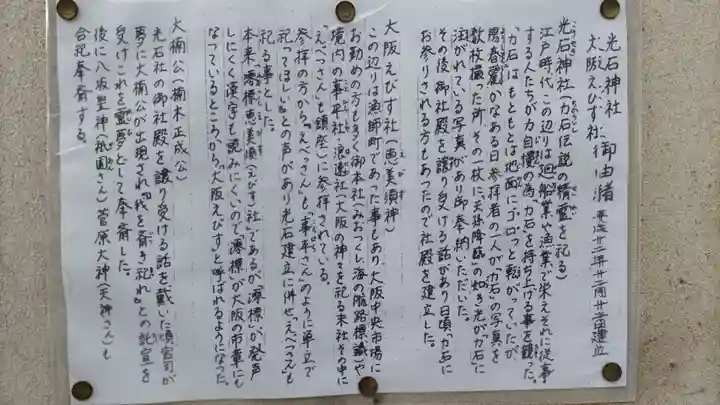 光石神社
大阪えびす社 御由緒 平成廿二年廿二月廿三日建立
光石神社(力石伝説の精霊を祀る)
江戸時代この辺りは廻船業や漁業で栄えそれに従事
する人たちが力自慢の為力石を持ち上げる事を競った。
力石はもともとは地面にゴロっと転がっていたが
陽春麗かなある日参拝者の一人が力石の写真を
数枚撮った所その一枚に天孫降臨の如き光が力石に
注がれている写真があり御奉納いただいた。
その後御社殿を譲り受ける話があり日頃力石に
お参りされる方もあったので社殿を建立した。
大阪えびす社(恵美須神)
この辺りは漁師町であった事もあり大阪中央市場に
お勤めの方も多く御本社(みおつくし海の航路標識)や
境内の事平社、浪速社(大阪の神々を祀る末社その中に
えべっさんも鎮座)に参拝されている。
参拝の方から、えべっさんも「事平さん」のように単立で
祀ってほしいとの声があり光石建立に併せ「えべっさん」も
祀る事とした。
本来「澪標恵美須(えびす)社」であるが「澪標」が発声
しにくく漢字も読みにくいので「澪標」が大阪の市章にも
なっているところから「大阪えびす」と呼ばれるようになった。
大楠公(楠木正成公)
光石社の御社殿を譲り受ける話を戴いた頃宮司が
夢に大楠公が出現され「我を斎き祀れ」との託宣を
受けこれを霊夢として奉斎した。
後に八坂神(祇園さん)菅原大神(天神さん)も
合祀奉斎する。